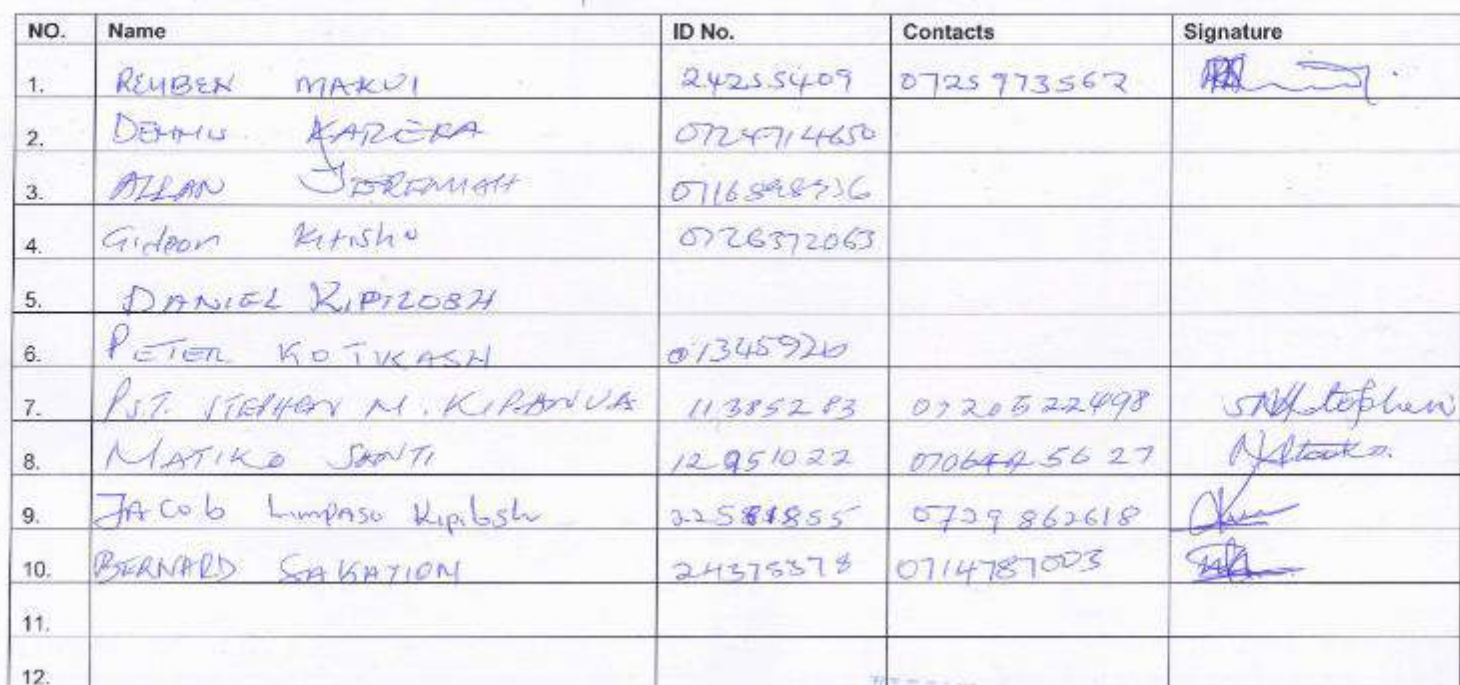 NO. Name ID No. Contacts Signature
1. REUBEN MAKUI 24255409 0725973562
2. DENNIS KARERA 0724714650
3. ALLAN JEREMIAH
4. Gideon Kitisho 0726372063
5. DANIEL KIPILOSH
6. PETER KOTIKASH 01345920
7. PST. STEPHEN M. KIPANUA 11385283 0720522498
8. MATIKO SANTI 12951022
9. JACOb Limpaso Kipilosh 0729862618
10. BERNARD SAKATION 24375378 0714787003
11.
12.